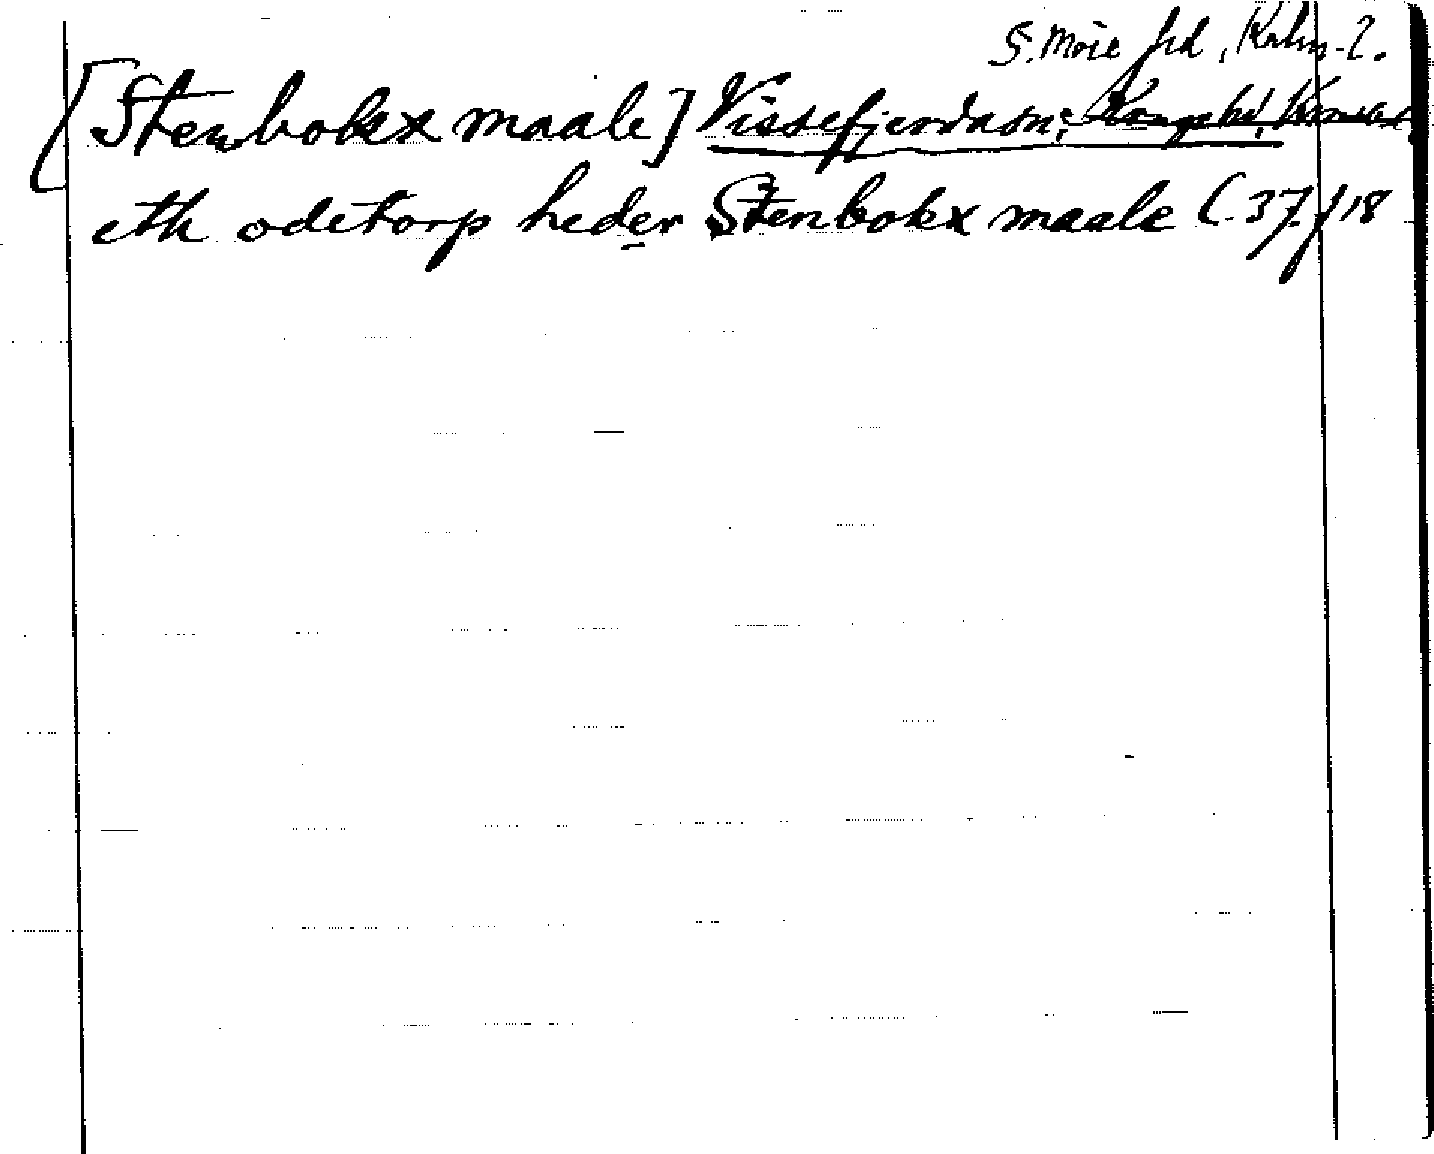 S. Möre hd, Kalm. l.
[Stenbokx maale] Vissefjerda sn;
eth ödetorp heder Stenbokx maale (37) / 18